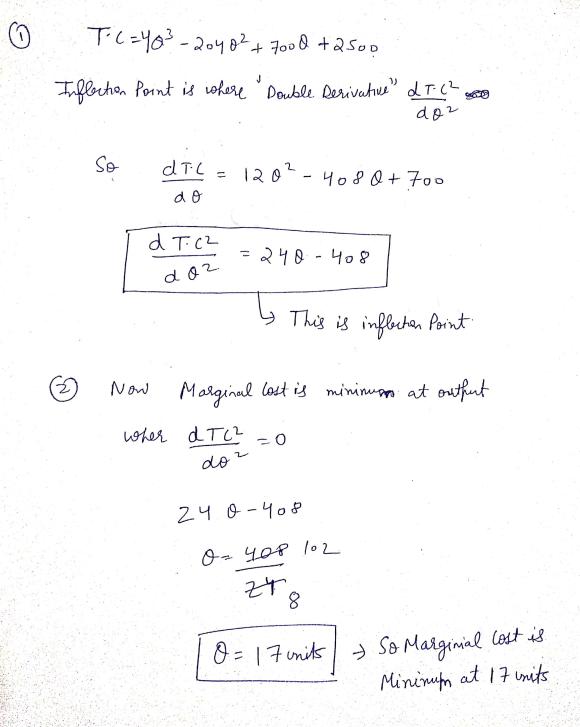 ① T·C = 4Q³ - 204Q² + 700Q + 2500
Inflection Point is where "Double Derivative" dT·C² / dQ²
So dT·C / dQ = 12Q² - 408Q + 700
dT·C² / dQ² = 24Q - 408
↳ This is inflection Point.
② Now Marginal Cost is minimum at output
wher dTC² / dQ² = 0
24Q - 408
Q = 408 102 / 24 8
Q = 17 units → So Marginial Cost is
Minimum at 17 units